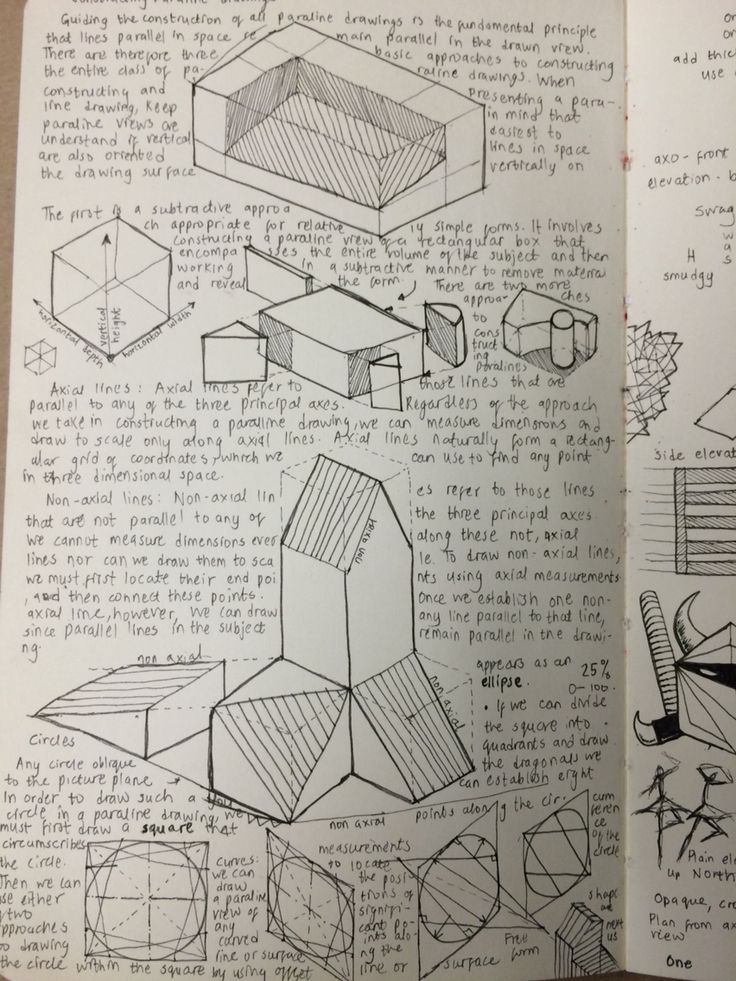 Constructing Paraline Drawings
Guiding the construction of all paraline drawings is the fundamental principle
that lines parallel in space re main parallel in the drawn view.
There are therefore three basic approaches to constructing
the entire class of pa- raline drawings. When
constructing and presenting a para-
line drawing, keep in mind that
paraline views are easiest to
understand if vertical lines in space
are also oriented vertically on
the drawing surface
The first is a subtractive approa
ch appropriate for relative ly simple forms. It involves
constructing a paraline view of a rectangular box that
encompa sses the entire volume of the subject and then
working in a subtractive manner to remove material
and reveal the form. There are two more
approa- ches
to
cons
truct
ing
paralines
vertical
height
horizontal depth
horizontal width
Axial lines : Axial lines refer to those lines that are
parallel to any of the three principal axes. Regardless of the approach
we take in constructing a paraline drawing, we can measure dimensions and
draw to scale only along axial lines. Axial lines naturally form a rectang-
ular grid of coordinates, which we can use to find any point
in three dimensional space.
Non-axial lines: Non-axial lin es refer to those lines
that are not parallel to any of the three principal axes.
we cannot measure dimensions ever along these not, axial
lines nor can we draw them to sca le. To draw non-axial lines,
we must first locate their end poi nts using axial measurements
, and then connect these points. Once we establish one non-
axial line, however, we can draw any line parallel to that line,
since parallel lines in the subject remain parallel in the drawi-
ng.
non axial
non axial
non axial
non axial
Circles
Any circle oblique
to the picture plane
appears as an
ellipse.
In order to draw such a
circle in a paraline drawing, we
must first draw a square that
circumscribes
the circle.
Then we can
use either
of two
approaches
to drawing
the circle within the square by using offset
25%
0-100.
• If we can divide
the square into
quadrants and draw
the diagonals we
can establish eight
points along the cir-
cum
feren
ce
of the
circle
curves:
we can
draw
a paraline
view of
any
curved
line or surface
measurements
to locate
the posi-
tions of
signifi-
cant po-
ints alo-
ng the
line or
surface
Free
form
shape
next
us
add thic
use
axo-front
elevation-b
Swag
H
smudgy
side elevat
Plain el
up North
Opaque, cr
Plan from ax
view
One